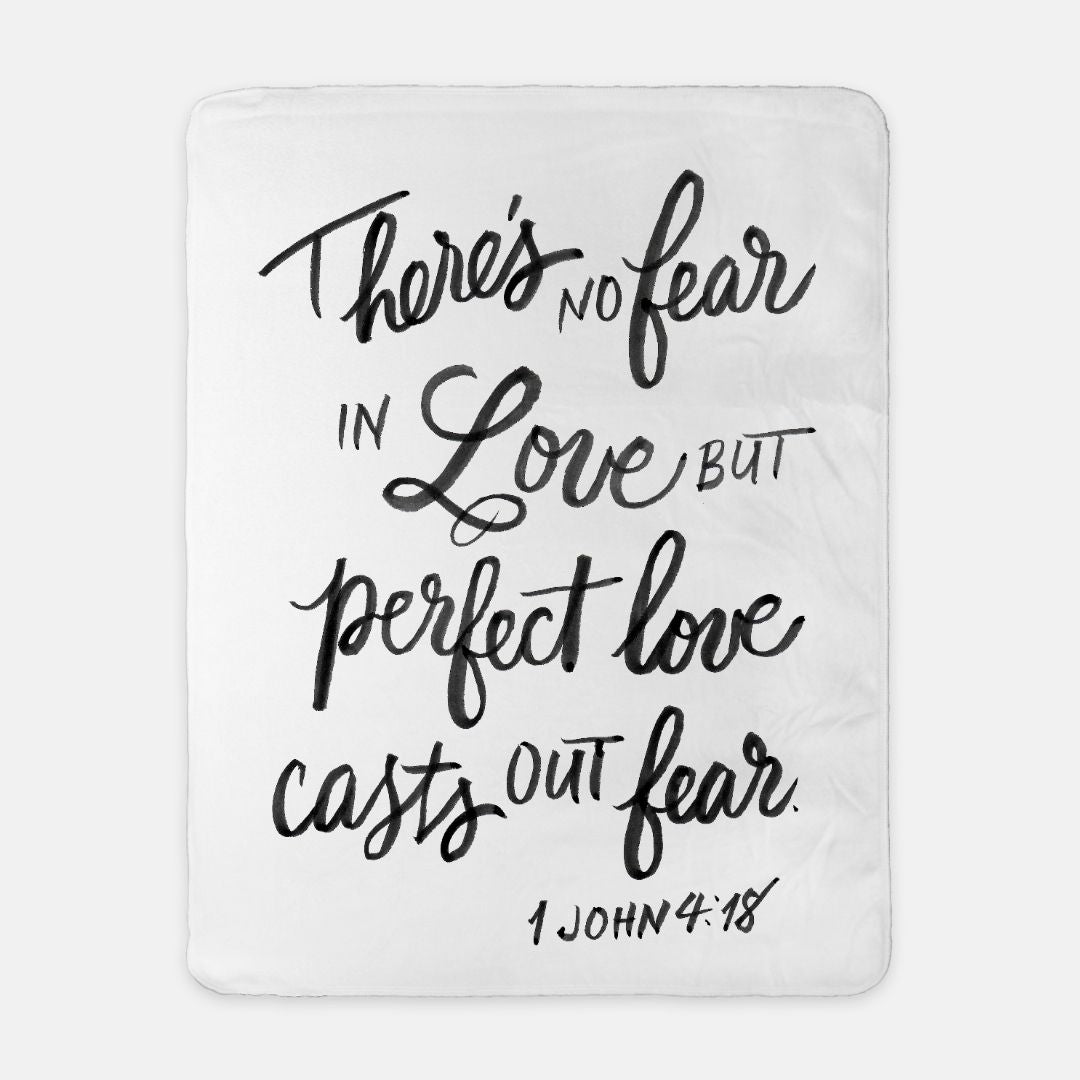 There's NO fear
IN Love BUT
perfect love
casts OUT fear.
1 JOHN 4:18